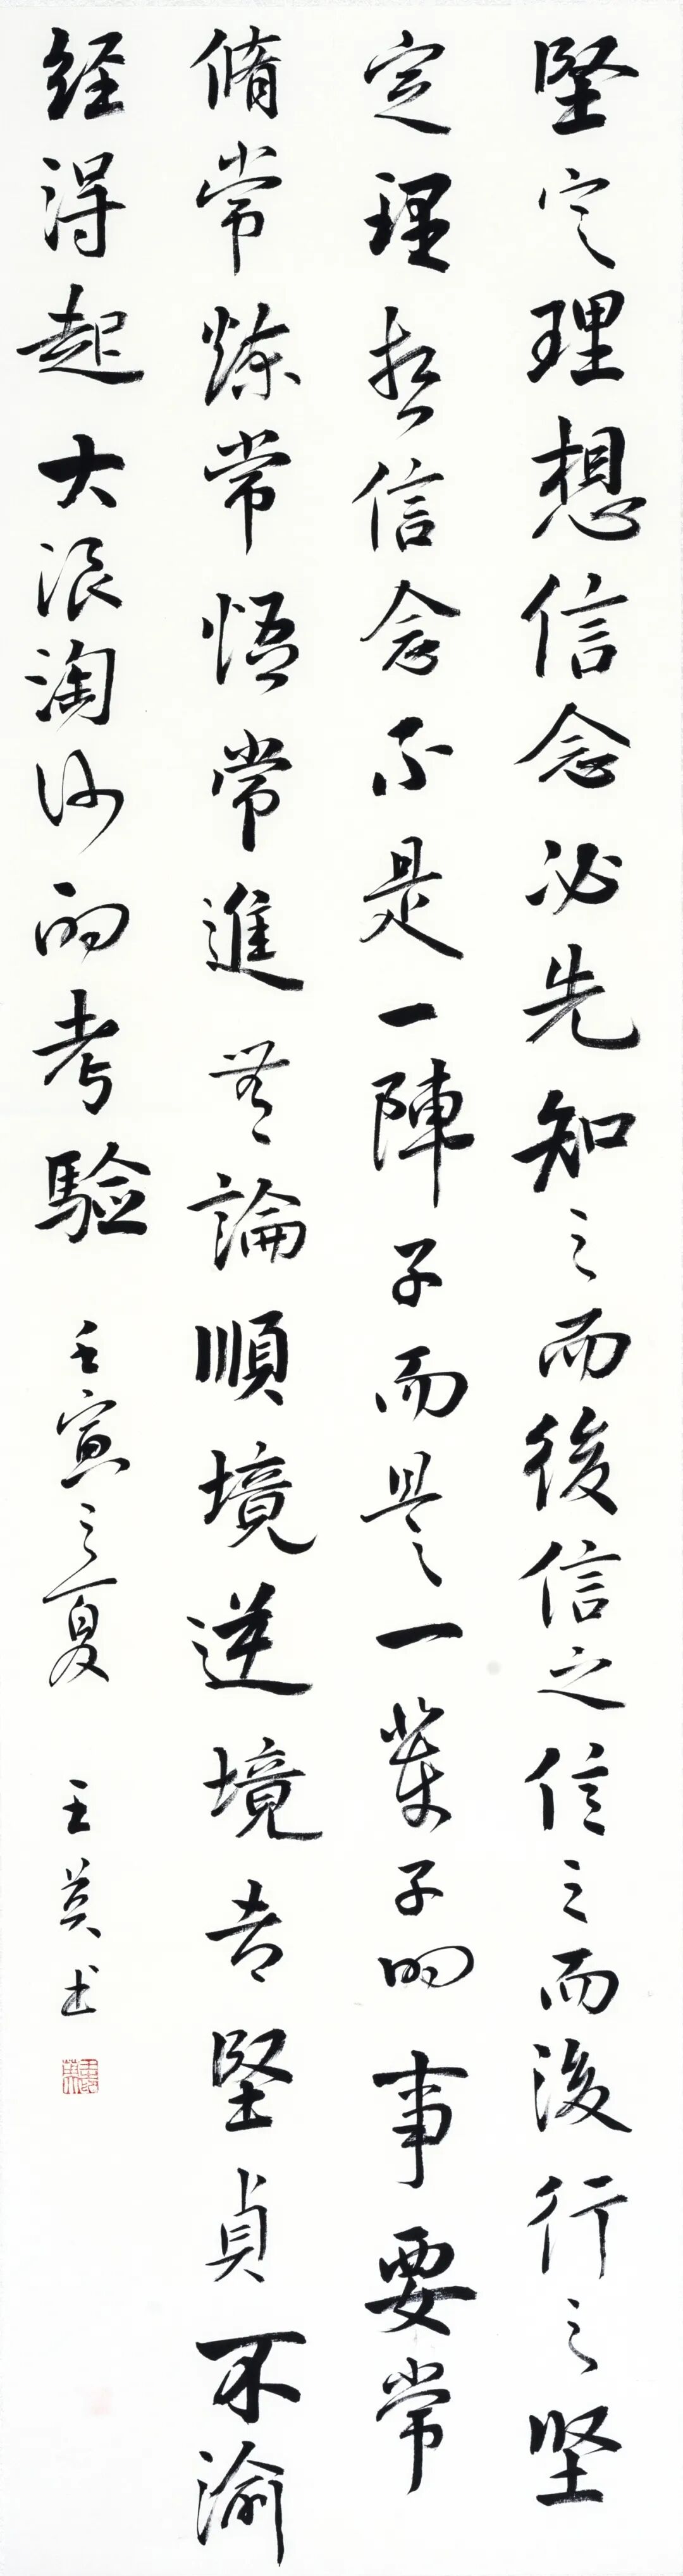 堅定理想信念必先知之而後信之信之而後行之坚
定理想信念不是一陣子而是一輩子的事要常
脩常煉常悟常進無論順境逆境皆堅貞不渝
经得起大浪淘沙的考驗
壬寅之夏
王英书